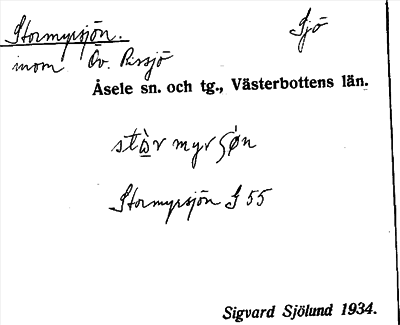 Stormyrsjön. Sjö
inom Öv. Persjö
Åsele sn. och tg., Västerbottens län.
Stormyrsjön S 55
Sigvard Sjölund 1934.